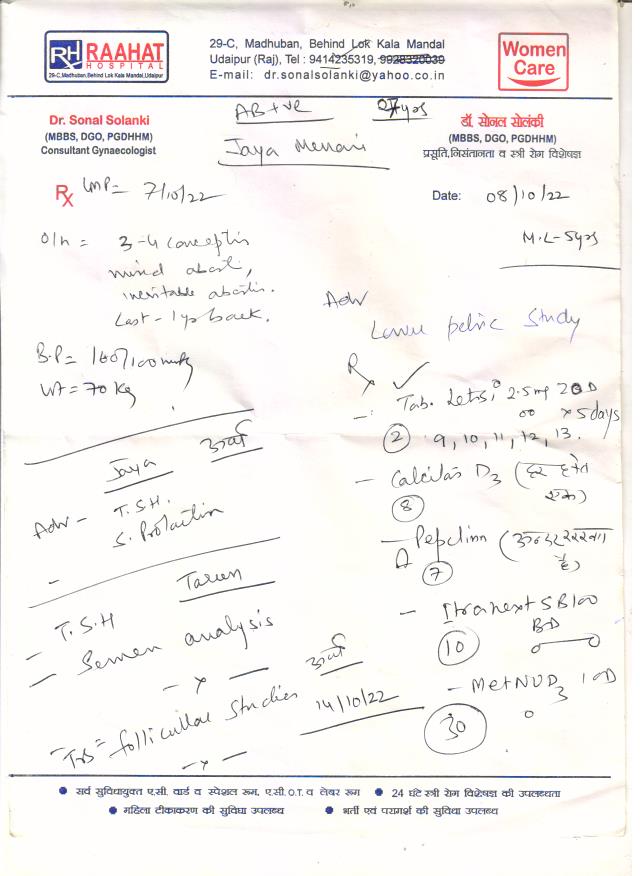 RH RAAHAT
HOSPITAL
29-C, Madhuban, Behind Lok Kala Mandal, Udaipur
29-C, Madhuban, Behind Lok Kala Mandal
Udaipur (Raj), Tel : 9414235319, 9928320039
E-mail: dr.sonalsolanki@yahoo.co.in
Women
Care
Dr. Sonal Solanki
(MBBS, DGO, PGDHHM)
Consultant Gynaecologist
AB+ve 27yrs
Jaya Menari
डॉ. सोनल सोलंकी
(MBBS, DGO, PGDHHM)
प्रसूति,निसंतानता व स्त्री रोग विशेषज्ञ
Rx LMP= 7/10/22
Date: 08/10/22
M.L-5yrs
O/h = 3-4 conceptn
abort,
inevitable abortn.
Last - 1 yr back.
B.P = 160/100 mmHg
Wt = 70 Kg
Adv
Lower pelvic Study
Rx
Tab. 2.5mg 2 OD
x 5 days
2 9, 10, 11, 12, 13.
- D3
8
7
- SB100
BD
10
- MetNUD3 1 OD
30
Jaya
Adv - T.S.H.
S. Prolactin
Tarun
- T.S.H
- Semen analysis
- x -
- TVS = follicular Studies 14/10/22
- x -
सर्व सुविधायुक्त ए.सी. वार्ड व स्पेशल रूम, ए.सी.ओ.टी. व लेबर रूम
24 घंटे स्त्री रोग विशेषज्ञ की उपलब्धता
महिला टीकाकरण की सुविधा उपलब्ध
भर्ती एवं परामर्श की सुविधा उपलब्ध